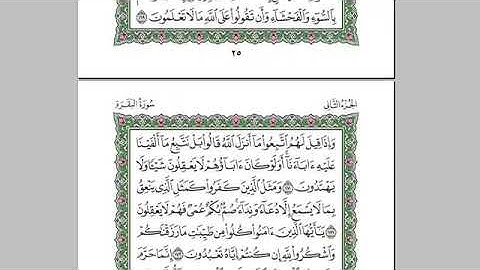 بِٱلسُّوٓءِ وَٱلۡفَحۡشَآءِ وَأَن تَقُولُواْ عَلَى ٱللَّهِ مَا لَا تَعۡلَمُونَ ١٦٩
٢٥
الجُزءُ الثَّانِي سُورَةُ البَقَرَةِ
وَإِذَا قِيلَ لَهُمُ ٱتَّبِعُواْ مَآ أَنزَلَ ٱللَّهُ قَالُواْ بَلۡ نَتَّبِعُ مَآ أَلۡفَيۡنَا
عَلَيۡهِ ءَابَآءَنَآۚ أَوَلَوۡ كَانَ ءَابَآؤُهُمۡ لَا يَعۡقِلُونَ شَيۡـٔٗا وَلَا
يَهۡتَدُونَ ١٧٠ وَمَثَلُ ٱلَّذِينَ كَفَرُواْ كَمَثَلِ ٱلَّذِي يَنۡعِقُ
بِمَا لَا يَسۡمَعُ إِلَّا دُعَآءٗ وَنِدَآءٗۚ صُمُّۢ بُكۡمٌ عُمۡيٞ فَهُمۡ لَا يَعۡقِلُونَ
١٧١ يَٰٓأَيُّهَا ٱلَّذِينَ ءَامَنُواْ كُلُواْ مِن طَيِّبَٰتِ مَا رَزَقۡنَٰكُمۡ
وَٱشۡكُرُواْ لِلَّهِ إِن كُنتُمۡ إِيَّاهُ تَعۡبُدُونَ ١٧٢ إِنَّمَا حَرَّمَ